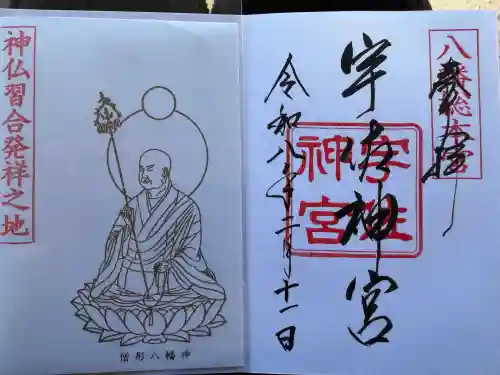 八幡総本宮
奉拝
宇佐神宮
宇佐神宮
令和八年二月十一日
神仏習合発祥之地
僧形八幡神